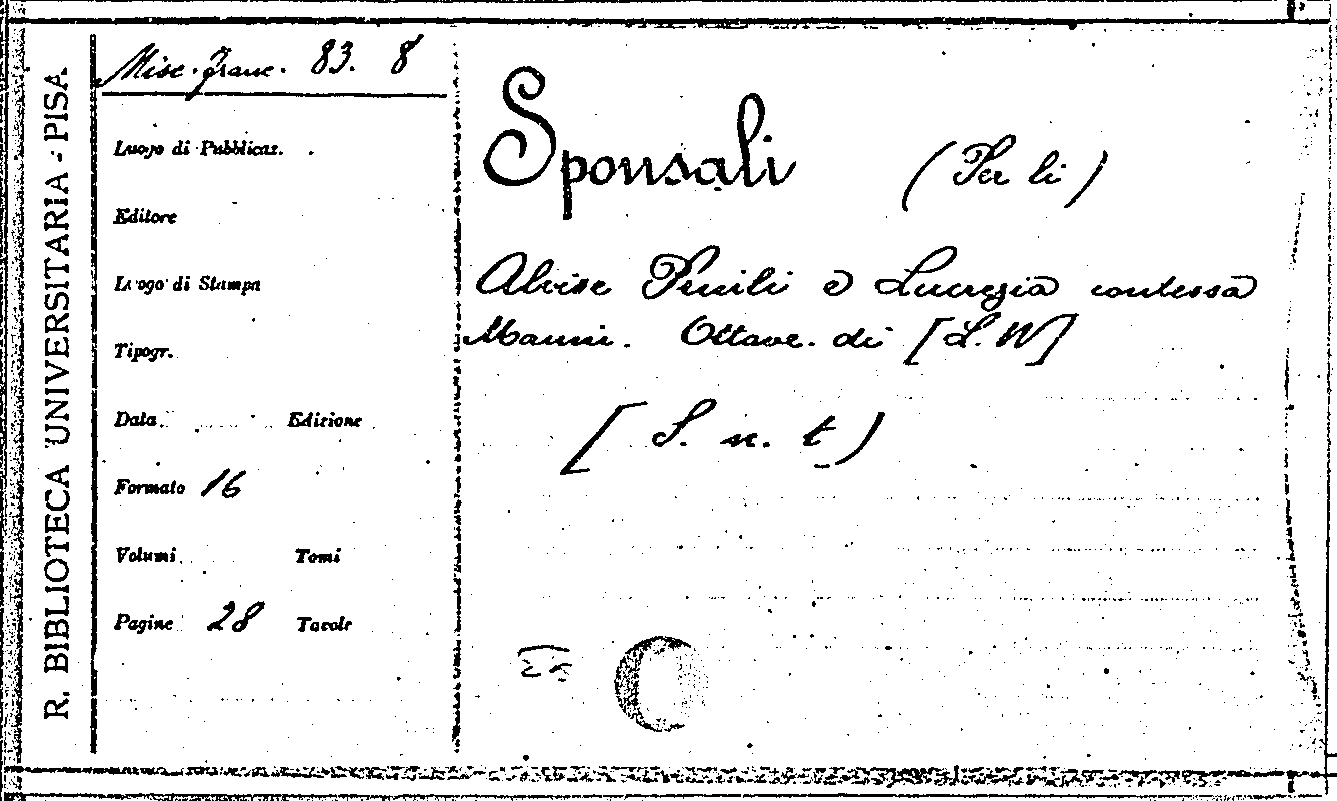 R. BIBLIOTECA UNIVERSITARIA - PISA
Misc. Franc. 83. 8
Luogo di Pubblicaz.
Editore
Luogo di Stampa
Tipogr.
Data Edizione
Formato 16
Volumi Tomi
Pagine 28 Tavole
Sponsali (Per li)
Alvise e Lucrezia contessa
Ottave. di [L. M]
[S. n. t)